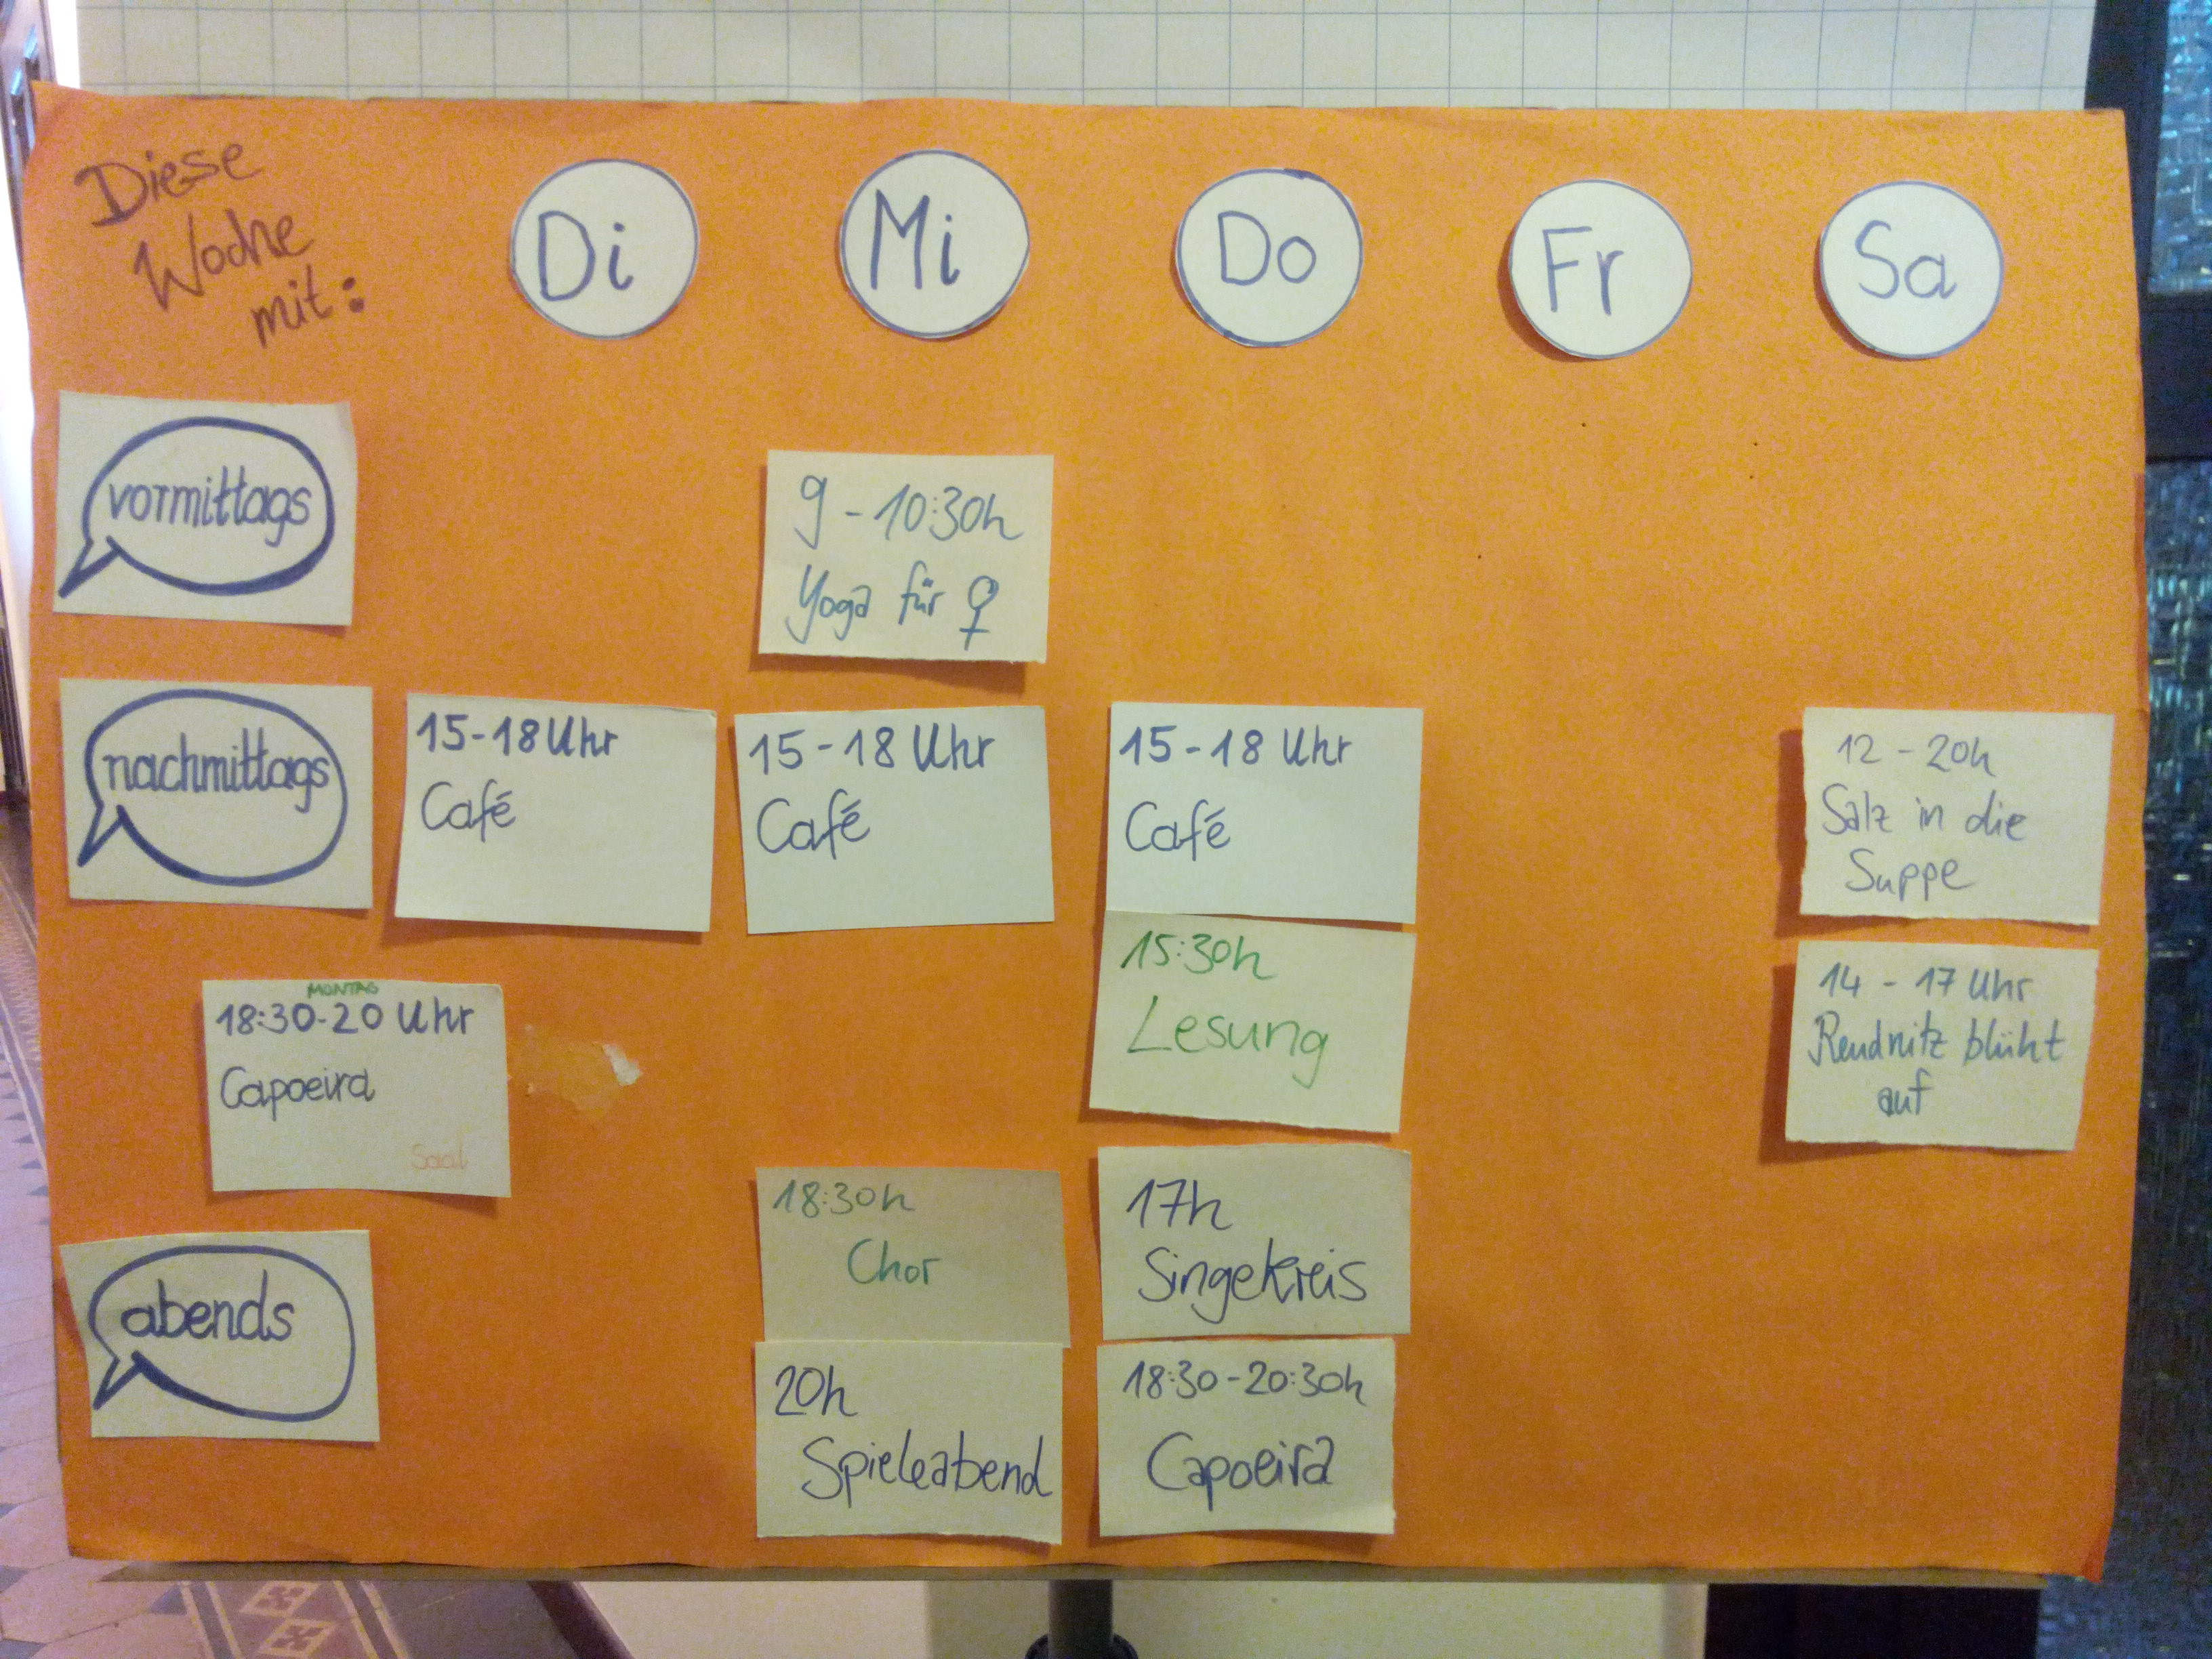 Diese
Woche
mit:
Di
Mi
Do
Fr
Sa
vormittags
9 - 10:30h
Yoga für ♀
nachmittags
15-18 Uhr
Café
15-18 Uhr
Café
15-18 Uhr
Café
12 - 20h
Salz in die
Suppe
15:30h
Lesung
14 - 17 Uhr
Reudnitz blüht
auf
MONTAG
18:30-20 Uhr
Capoeira
Saal
abends
18:30h
Chor
17h
Singekreis
20h
Spieleabend
18:30-20:30h
Capoeira